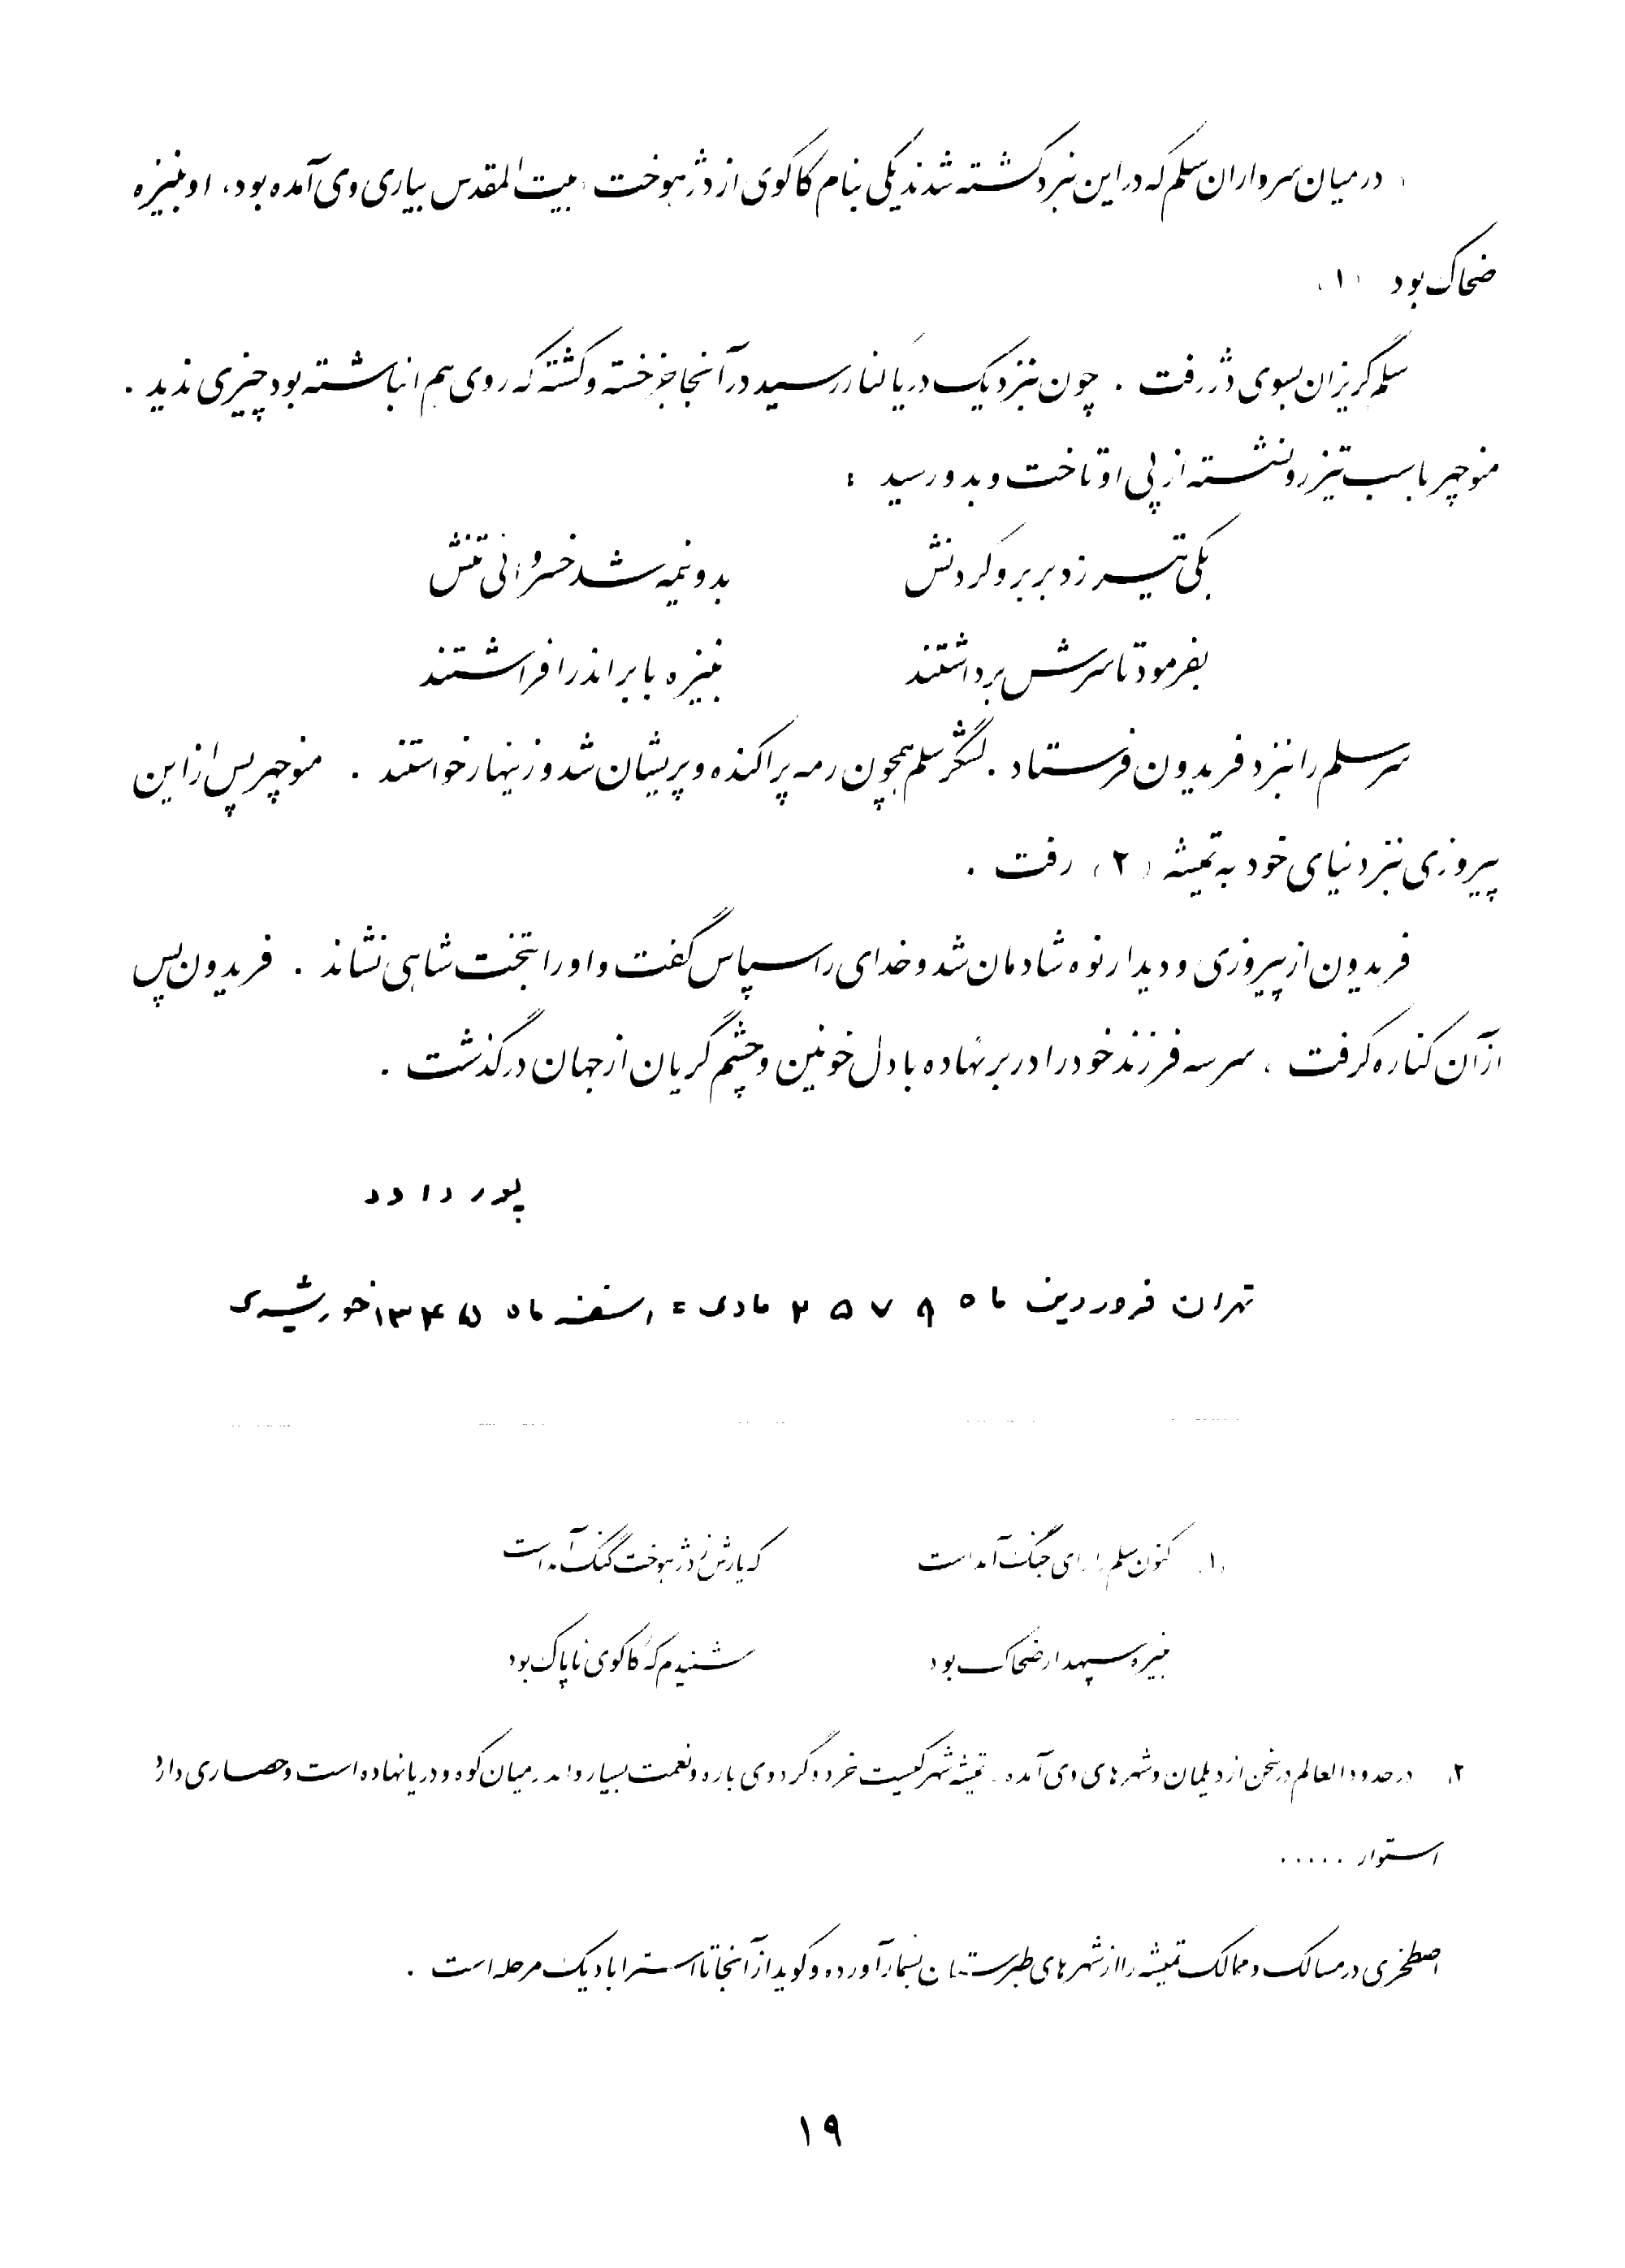 در میان سرواران سلم که در این نبرد کشته شدند یکی بنام کاکوی از دژهوخت (بیت المقدس) بیاری وی آمده بود، او نبیره
ضحاک بود (۱)
سلم گریزان بسوی دژ رفت . چون بنزدیک دریا کنار رسید در آنجا جز خسته و کشته که روی هم انباشته بود چیزی ندید .
منوچهر باسب تیزرو نشسته از پی او تاخت و بدو رسید :
یکی تیر زد بر بر و گردنش     بدو نیمه شد خسروانی تنش
بفرمود تا سرش برداشتند     بنیزه بابر اندر افراشتند
سر سلم را بنزد فریدون فرستاد . لشگر سلم همچون رمه پراکنده و پریشان شد و زینهار خواستند . منوچهر پس از این
پیروزی بنزد نیای خود به تمیشه (۲) رفت .
فریدون از پیروزی و دیدار نوه شادمان شد و خدای را سپاس گفت و او را بتخت شاهی نشاند . فریدون پس
از آن کناره گرفت ، سر سه فرزند خود را در بر نهاده با دل خونین و چشم گریان از جهان درگذشت .
پور داود
تهران فروردین ماه ۲۵۷۹ مادی = اسفند ماه ۱۳۴۵ خورشیدی
۱. کنون سلم را رای جنگ آمد است     که یارش ز دژهوخت گنگ آمد است
نبیره سپهدار ضحاک بود     شنیدم که کاکوی ناپاک بود
۲. در حدود العالم در سخن از دیلمان و شهرهای وی آمده . تمیشه شهرکیست خرد و گرد وی باره و نعمت بسیار و اندر میان کوه و دریا نهاده است و حصاری دارد
استوار .....
اصطخری در مسالک و ممالک تمیشه را از شهرهای طبرستان بشمار آورده و گوید از آنجا تا استراباد یک مرحله است .
۱۹